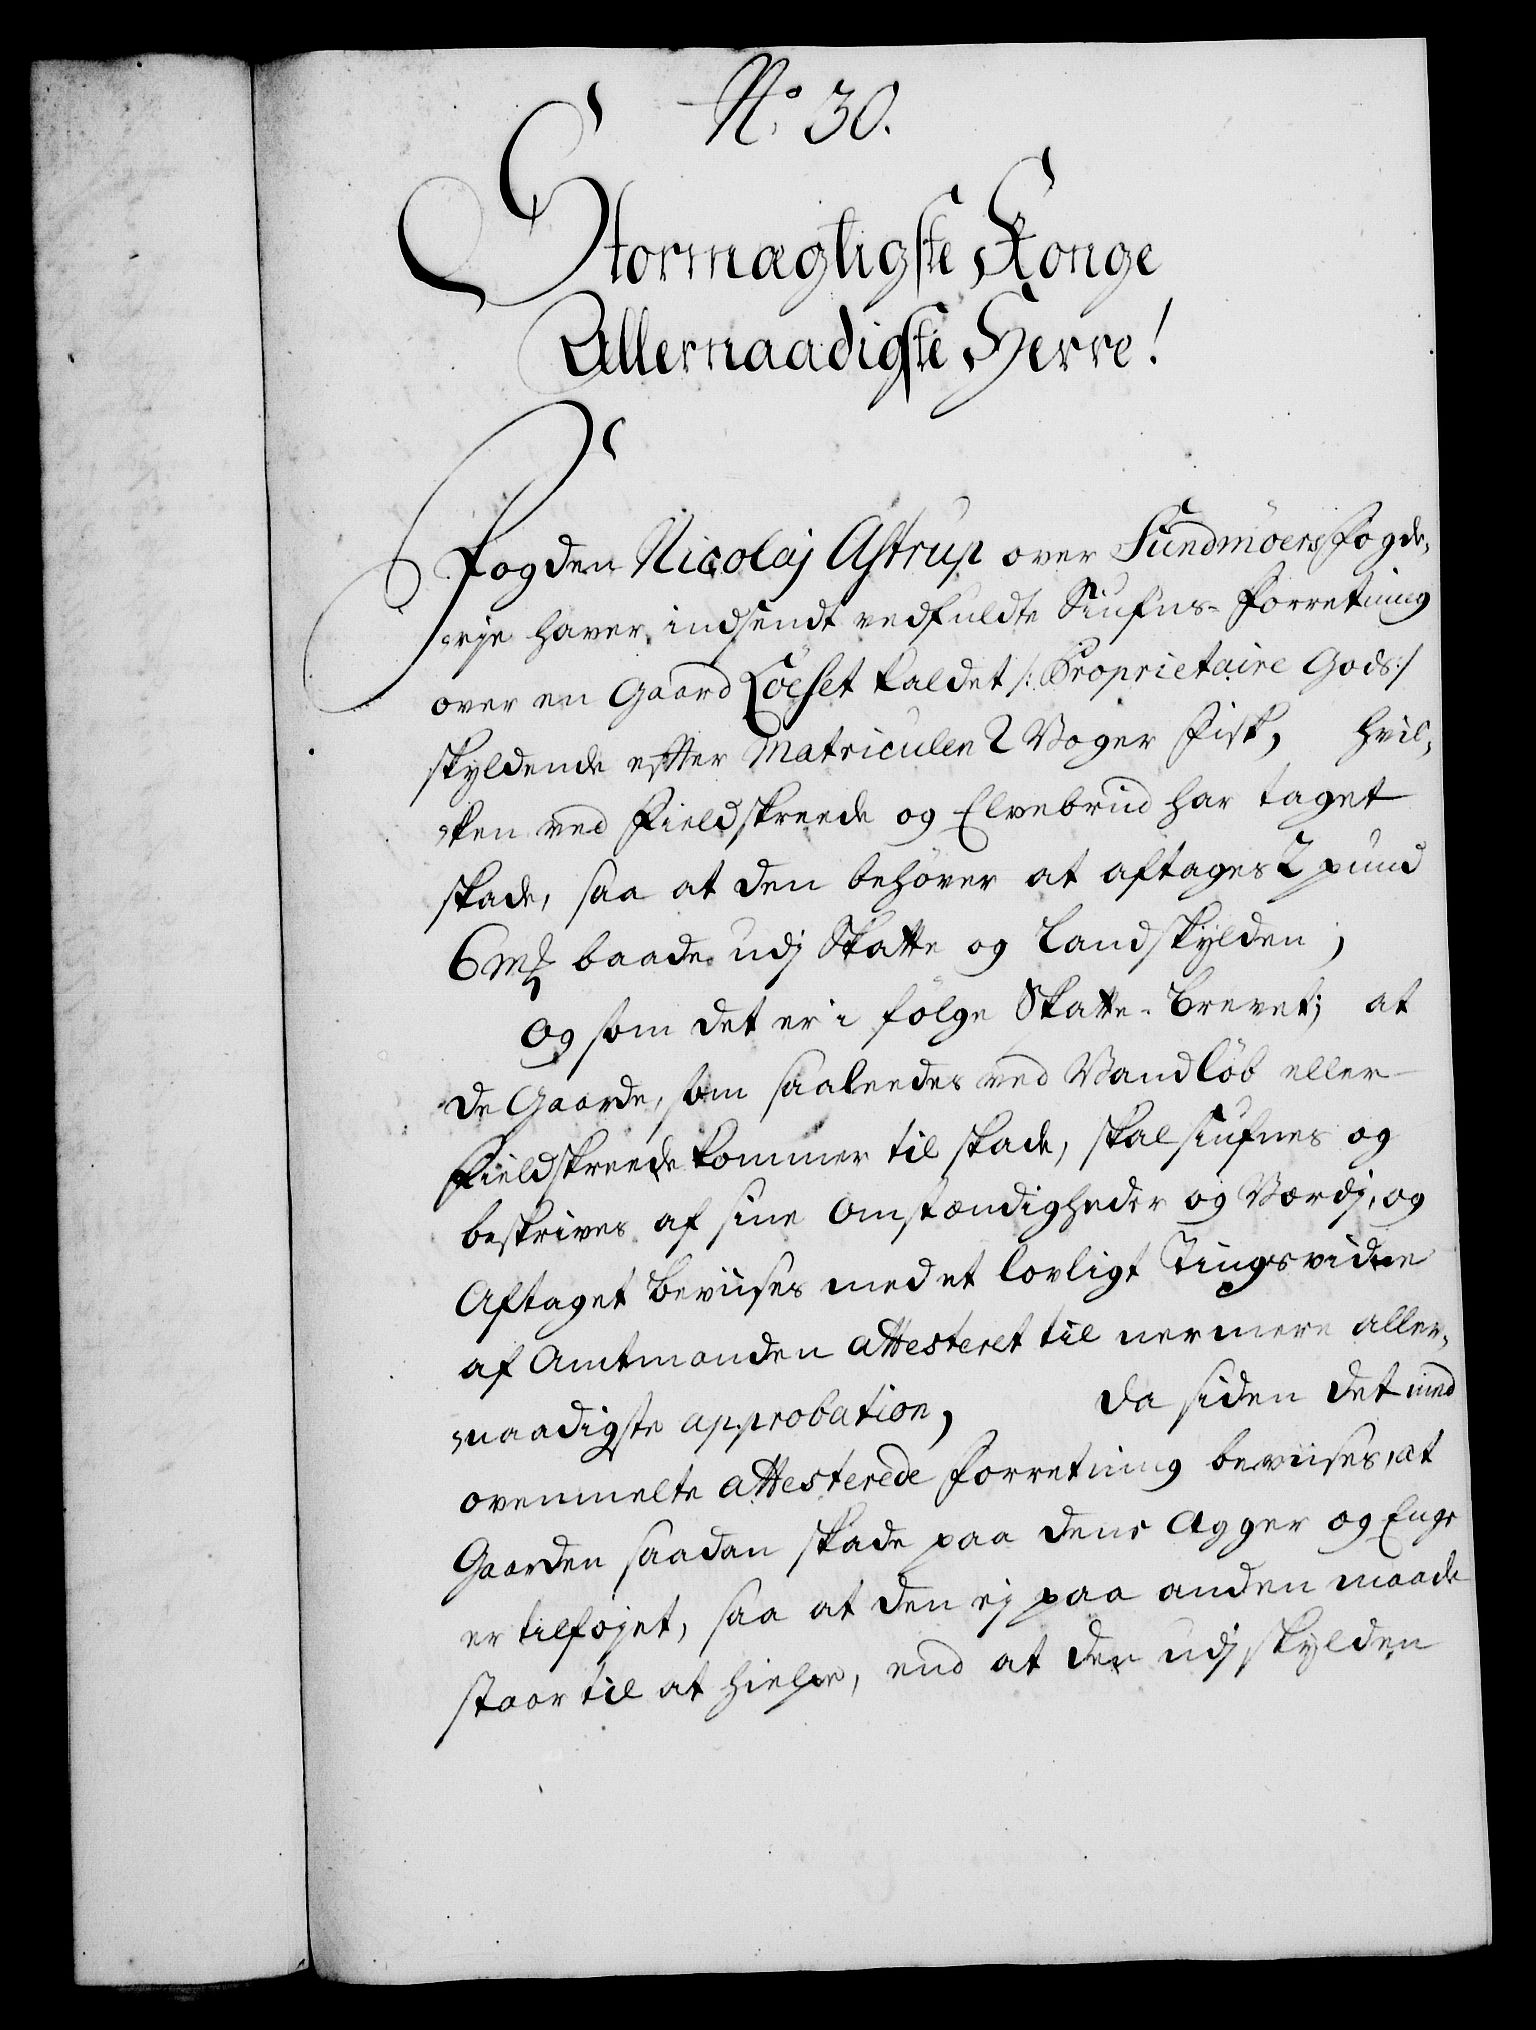 No. 30.
Stormægtigste Konge
Allernaadigste Herre!
Fogden Nicolaj Astrup over Sundmöers Fogde,
,rje haver indsendt vedfuldte Siufns-Forretning
over en Gaard Löeset kaldet /: Proprietaire Gods:/
skyldende efter Matriculen 2 Voger Fisk, hvil,
,ken ved Fieldskreede og Elvebrud har taget
skade, saa at den behöver at aftages 2 pund
6 mk baade udj Skatte og Landskylden;
Og som det er i fölge Skatte-Brevet; at
de Gaarde, som saaleedes ved Vandlöb eller
Fieldskreede kommer til skade, skal siufnes og
beskrives af sine Omstændigheder og Værdj, og
Aftaget beviises med et lovligt Tingsvidne
af Amtmanden attesteret til nermere aller,
,naadigste approbation, da siden det med
ovenmelte attesterede Forretning beviises, at
Gaarden saadan skade paa dens Agger og Enge
er tilföjet, saa at den ej paa anden maade
staar til at hielpe, end at der udj skylden